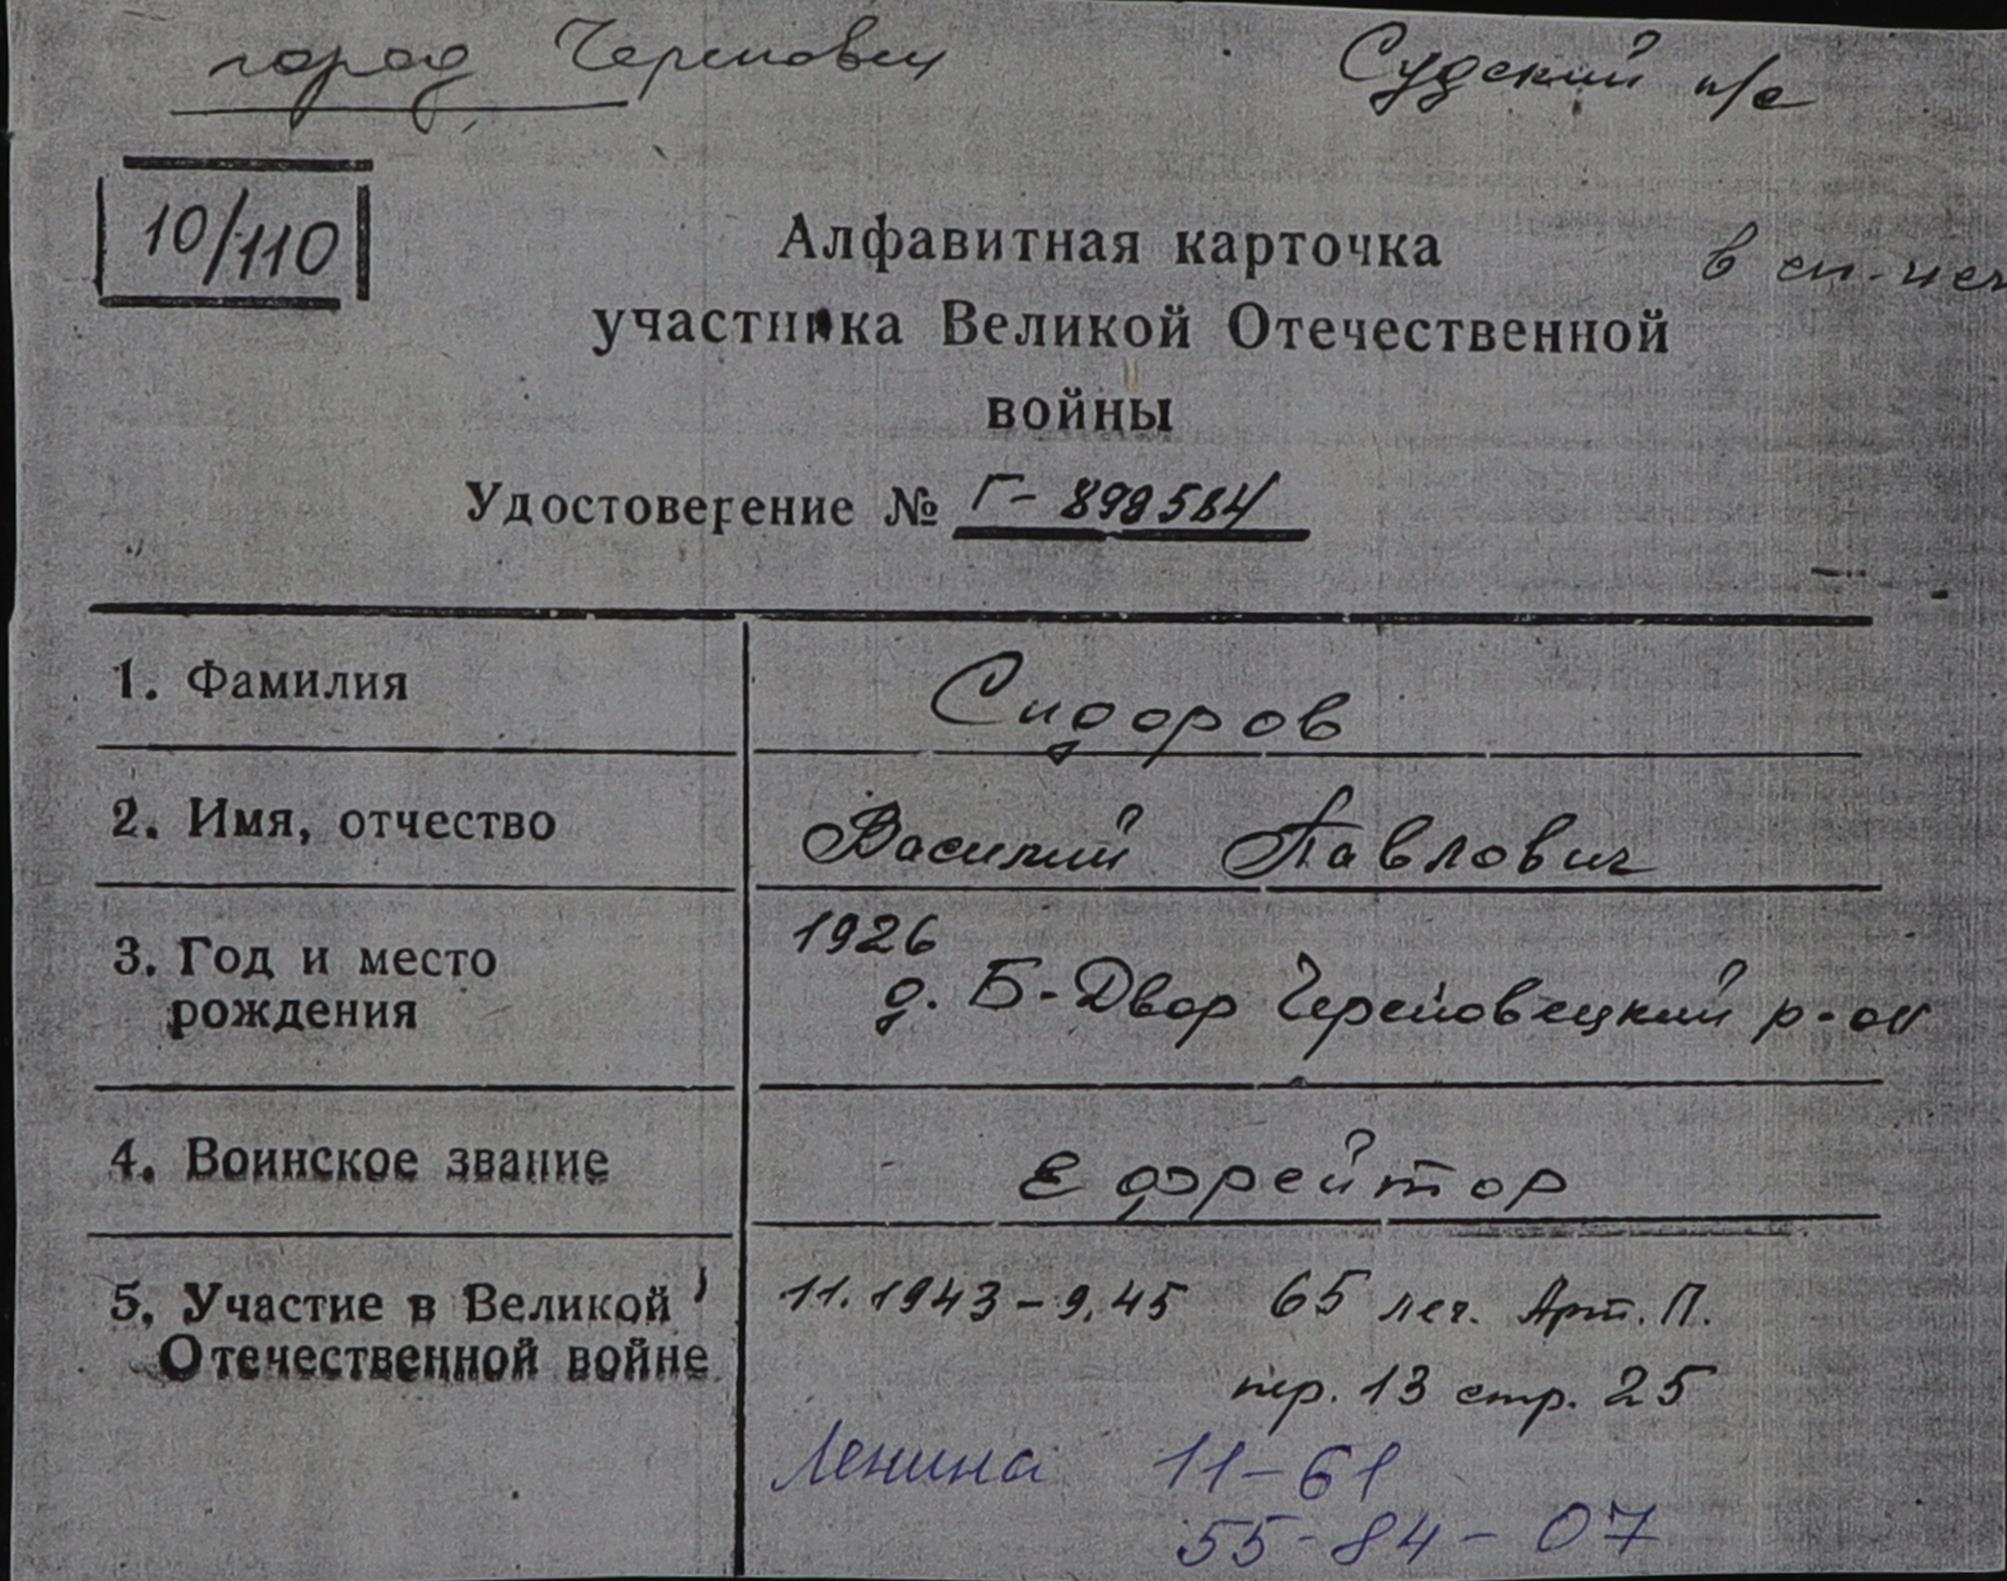 город Череповец
Судский п/с
10/110
Алфавитная карточка
участника Великой Отечественной
войны
в сп.
Удостоверение № Г-898584
1. Фамилия
Сидоров
2. Имя, отчество
Василий Павлович
3. Год и место
рождения
1926
д. Б-Двор Череповецкий р-он
4. Воинское звание
Ефрейтор
5. Участие в Великой
Отечественной войне
11.1943-9.45 65 лег. Арт. П.
пер. 13 стр. 25
Ленина 11-61
55-84-07